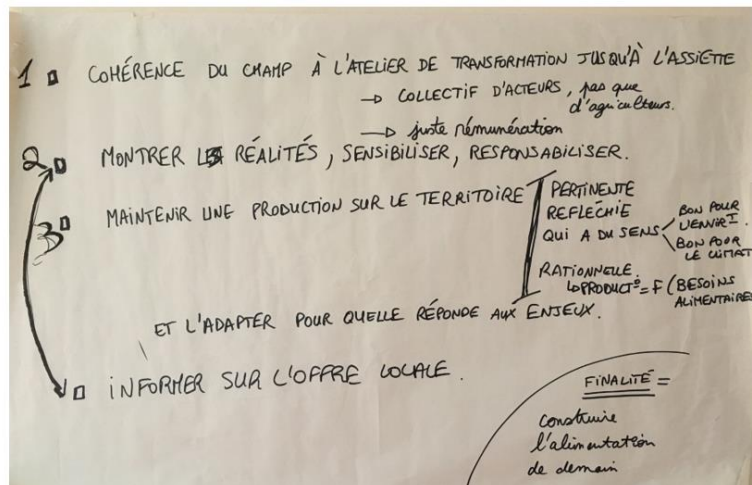 1 COHÉRENCE DU CHAMP À L'ATELIER DE TRANSFORMATION JUSQU'À L'ASSIETTE
→ COLLECTIF D'ACTEURS, pas que
d'agriculteurs.
→ juste rémunération
2 MONTRER LES RÉALITÉS, SENSIBILISER, RESPONSABILISER.
3 MAINTENIR UNE PRODUCTION SUR LE TERRITOIRE
PERTINENTE
REFLÉCHIE
QUI A DU SENS
BON POUR
L'ENVIRT.
BON POUR
LE CLIMAT
RATIONNELLE
↳ PRODUCTº = F (BESOINS
ALIMENTAIRES
ET L'ADAPTER POUR QUELLE RÉPONDE AUX ENJEUX.
INFORMER SUR L'OFFRE LOCALE.
FINALITÉ =
construire
l'alimentation
de demain